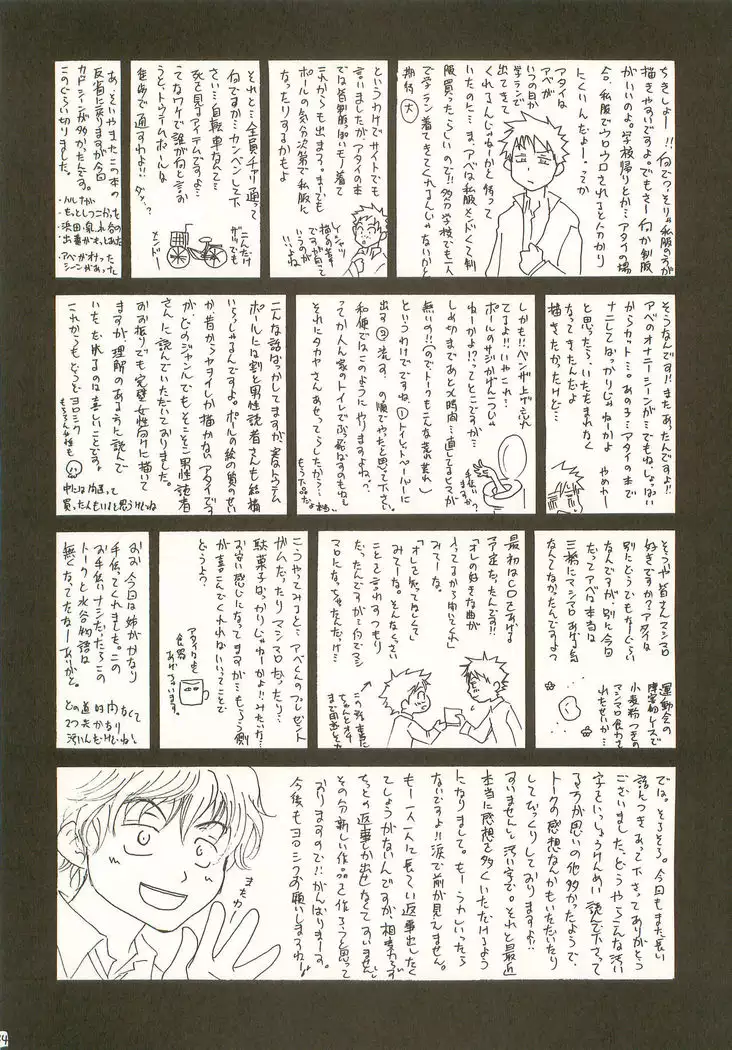 ちきしょー!!何で?そりゃ私服の方が
描きやすですよ。でもさー何か制服
がいいのよ。学校帰りとか…アタイの場
合、私服でウロウロされると分かり
にくいんだよー。ってか
アタイは
アベが
いつの日か
学ランで
出てきて
くれるんじゃねーかと待って
いたのに…ま、アベは私服メンドくて制
服買ったらしいので!!多分学校でも一人
で学ラン着てきてくれるんじゃないかと
期待 大
というわけでサイトでも
言いましたがアタイの本
では皆制服ぽいモノ着て
これからも出ます。までも
ポールの気分次第で私服に
なったりするかもよ
描くの楽
ですが何って
いうの…よね
それと…全員チャリ通って
何ですか…カンベンして下
さい…自転車なんて…
死を見るアイテムですよ…
てなワケで誰が何と言お
うと、トウテムポールは
徒歩で通すわよ!!
ダッ。?
こんだけ
ザツでも
メンドー
あ、そいやまたこの本の
反省に戻りますが今回
カットシーンが多かったんです。
このぐらい切りました。
・ハルナが
もっとしつこかった
・浜田・泉・水谷の
出番がもっとあった
・アベがオナった
シーンがあった
そうなんです!!またあったんですよ!!
アベのオナニーシーンが…でもねしょっぱい
からカット…。あの子…アタイの本で
ナニしてばっかりじゃねーかよ
と思ったら、いたたまれなく
なってきたんだよ
やめれー
描きたかったけど…
しかも!!ベンザ上げ忘れ
てるよ!!いやこれ…
ポールのサジかげんつーじゃ
ねーかよ!?ってとこですが…
しめ切まであと〆時間…直してるヒマが
無いの!!(のでトークもこんな荒れ荒れ)
というわけでですね、①トイレットペーパーに
出す②流す、の順でやったと思って下さい。
和便ではこのようにやりますよね?
ってか人ん家のトイレでぶっぱなすのもね…
それにタカヤさん あせってらしたから…
もう下品だよ本当に
手伝い
ますか?
こんな話ばっかしてますが、実はトウテム
ポールには割と男性読者さんも結構
いらっしゃるんですよ。ポールの絵の質のせい
か 昔からヤヨイしか描かないアタイです
が、どのジャンルでもそこそこ男性読者
さんに読んでいただいておりました。
おお振りでも完璧女性向けに描いて
ますが理解のあるように読んで
いただれるのは喜しいことです。
これからもどうぞヨロシク
もちろん女性も
中には間違って
買った人もいると思うけどね
そういや皆さんマシマロ
好きですか?アタイは
別にどうでもなーぐらい
なんですが、別に今回
だってアベは本当は
三橋にマシマロあげる気
なんてなかったんですよ
運動会の
障害物レースで
小麦粉つきの
マシマロ食わさ
れたせいか…
最初はCDをあげる
予定だったんです!!
「オレの好きな曲が
入ってるから聞いてくれ」
みてーな。
「オレを知ってほしくて」
みてーな。そんなくさい
ことを言わすつもり
だったんですが…何でマシ
マロになっちゃたんだけ…
こうやってみると…アベくんのプレゼント
がムだったりマシマロだったり…
駄菓子ばっかりじゃねーかよ!!みたいな…
お安い感じになってますが…もらう側
が喜こんでくれればいいってことで
どうよ?
アタイはよく
食器
あげていますね
おお、今回は姉がかなり
手伝ってくれました。この
お手伝いナシだったらこの
トークと水谷物語は
無くなってたなーありがと。
では。そろそろ。今回もまた長い
話につきあって下さってありがとう
ございました。どうやらこんな汚い
字をいっしょうけんめい読んで下さって
る方が思いの他多かったようで、
トークの感想なんかもいただいたり
してびっくりしておりますよ!!
すいません と 汚い字で。それと最近
本当に感想を多くいただけるよう
になりまして。もーうれしいったら
ないですよ!!涙で前が見えません。
もー一人一人に長くてい返事出したく
てしょうがないんですが、相変わらず
ちっとの返事しか出せなくてすいません。
その分新しい作品を作ろうと思って
おりますので!!がんばりまーす。
今後もヨロシクお願いしますねー!
またねー